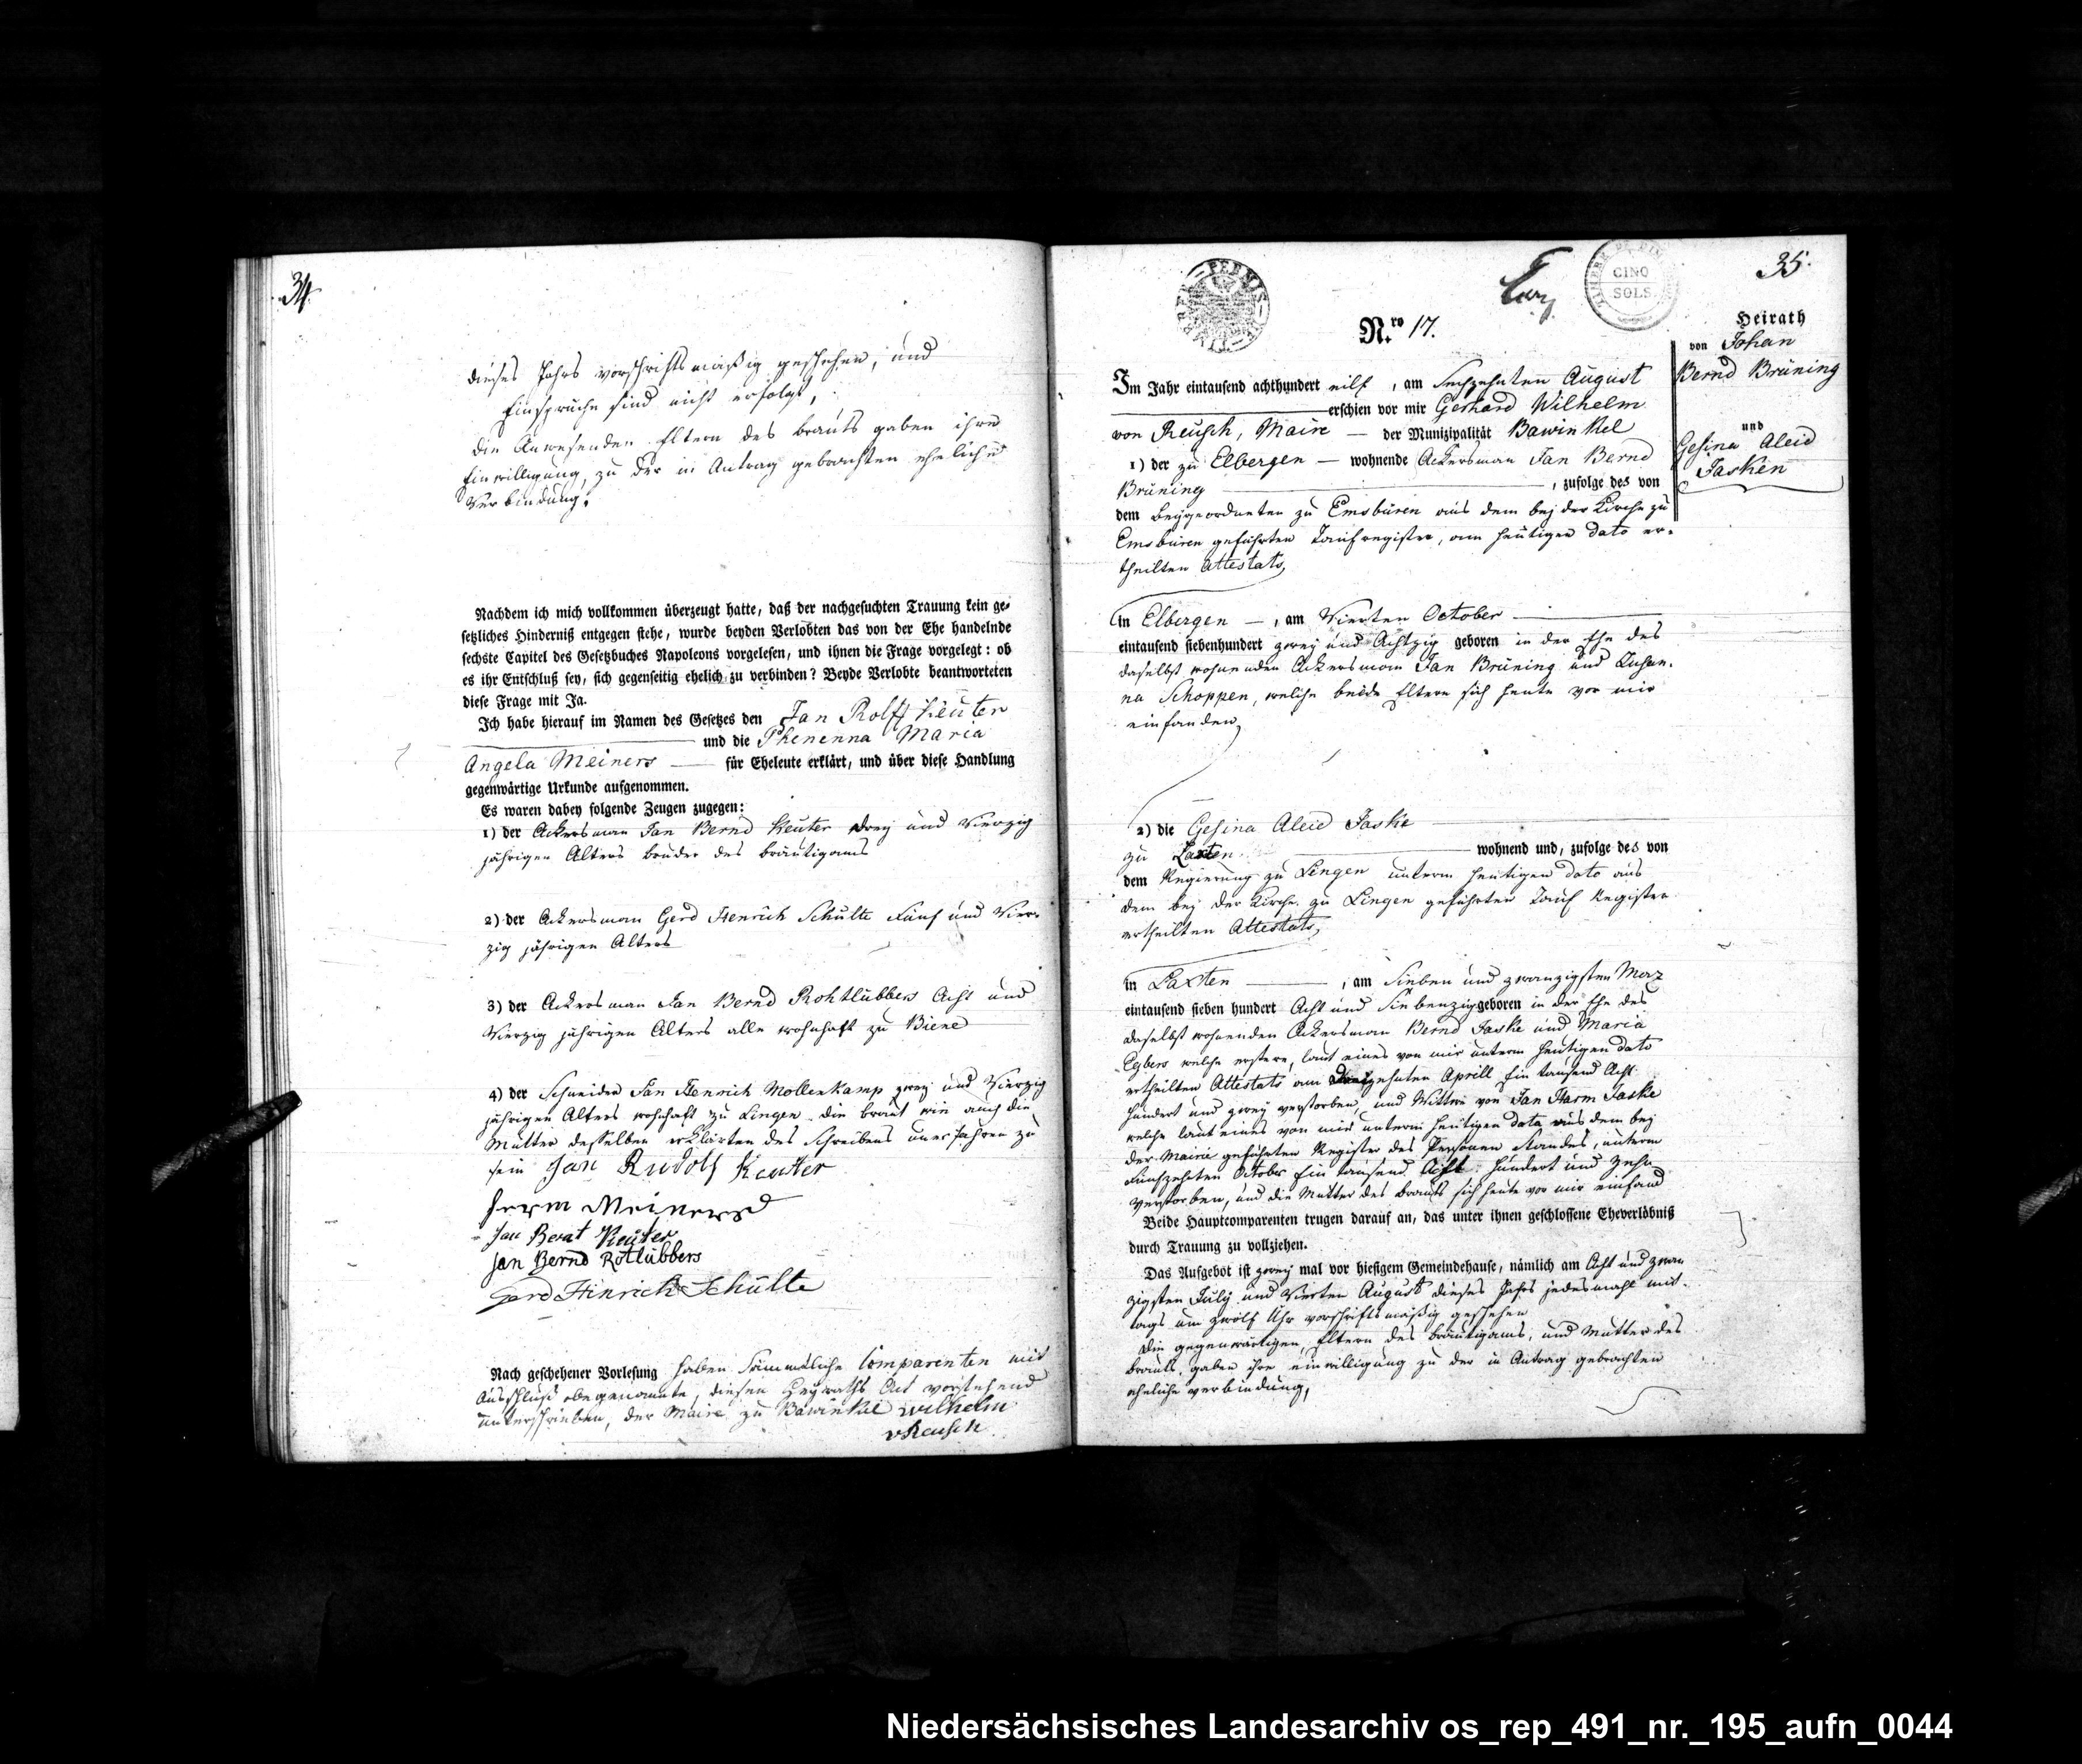 34.
dieses Jahrs vorschriftsmäßig geschehen, und
Einspruche sind nicht erfolgt,
die Anwesenden Eltern des brauts gaben ihre
Einwilligung, zu der in Antrag gebrachten eheliche
Verbindung.
Nachdem ich mich vollkommen überzeugt hatte, daß der nachgesuchten Trauung kein ge-
setzliches Hinderniß entgegen stehe, wurde beyden Verlobten das von der Ehe handelnde
sechste Capitel des Gesetzbuches Napoleons vorgelesen, und ihnen die Frage vorgelegt: ob
es ihr Entschluß sey, sich gegenseitig ehelich zu verbinden? Beyde Verlobte beantworteten
diese Frage mit Ja.
Ich habe hierauf im Namen des Gesetzes den Jan Rolff Keuter
und die Phenenna Maria
Angela Meiners für Eheleute erklärt, und über diese Handlung
gegenwärtige Urkunde aufgenommen.
Es waren dabey folgende Zeugen zugegen:
1) der Ackersman Jan Bernd Keuter drey und Vierzig
jährigen Alters bruder des bräutigams
2) der Ackersman Gerd Henrich Schulte Fünf und Vier-
zig jährigen Alters
3) der Ackersman Jan Bernd Rohtlübbers Acht und
Vierzig jährigen Alters alle wohnhaft zu Biene
4) der Schneider Jan Henrich Mollenkamp zwey und Vierzig
jährigen Alters wohnhaft zu Lingen die braut wie auch die
Mutter desselben erklärten des Schreibens unerfahren zu
sein Jan Rudolf Keuter
Herm Meiners
Jan Berat Keuter
Jan Bernd Rotlübbers
Gerd Hinrich Schulte
Nach geschehener Vorlesung haben Sämmtliche Comparenten mit
Ausschluß obgenannte, diesen Heyraths Act vorstehend
unterschrieben, der Maire zu Bawinkel Wilhelm
vReusch
35.
PERMIS
TIMBRE
CINQ
SOLS
Nro 17.
Heirath
von Johan
Bernd Brüning
und
Gesina Aleid
Jasken
Im Jahr eintausend achthundert eilf, am Sechzehnten August
erschien vor mir Gerhard Wilhelm
von Reusch, Maire der Munizipalität Bawinkel
1) der zu Elbergen wohnende Ackersman Jan Bernd
Brüning, zufolge des von
dem Beygeordneten zu Emsbüren aus dem bej der Kirche zu
Emsbüren geführten Taufregister, am heutigen dato er-
theilten Attestats,
in Elbergen, am Vierten October
eintausend siebenhundert zwey und Achtzig geboren in der Ehe des
daselbst wohnenden Ackersman Jan Brüning und Susan-
na Schoppen, welche beide Eltern sich heute vor mir
einfanden,
2) die Gesina Aleid Jaske
zu Laxten wohnend und, zufolge des von
dem Regierung zu Lingen unterm heutigen dato aus
dem bej der Kirche zu Lingen geführten Tauf Register
ertheilten Attestats,
in Laxten, am Sieben und zwanzigsten Merz
eintausend sieben hundert Acht und Siebenzig geboren in der Ehe des
daselbst wohnenden Ackersman Bernd Jaske und Maria
Egbers welche erstere, laut eines von mir unterm heutigen dato
ertheilten Attestats am zehnten Aprill Ein tausend Acht
hundert und zwey verstorben, und Wittwe von Jan Harm Jaske
welche laut eines von mir unterm heutigen data aus dem bej
der Mairie geführten Register des Personen Standes, unterm
Fünfzehnten October Ein tausend Acht hundert und zehn
verstorben, und die Mutter des brauts sich heute vor mir einfand
Beide Hauptcomparenten trugen darauf an, das unter ihnen geschlossene Eheverlöbniß
durch Trauung zu vollziehen.
Das Aufgebot ist zwey mal vor hiesigem Gemeindehause, nämlich am Acht und zwan
zigsten July und Vierten August dieses Jahrs jedesmahl mit-
tags um zwölf Uhr vorschriftsmäßig geschehen
die gegenwärtigen Eltern des bräutigams, und Mutter des
brauts, gaben ihre einwilligung zu der in Antrag gebrachten
eheliche verbindung,
Niedersächsisches Landesarchiv os_rep_491_nr._195_aufn_0044